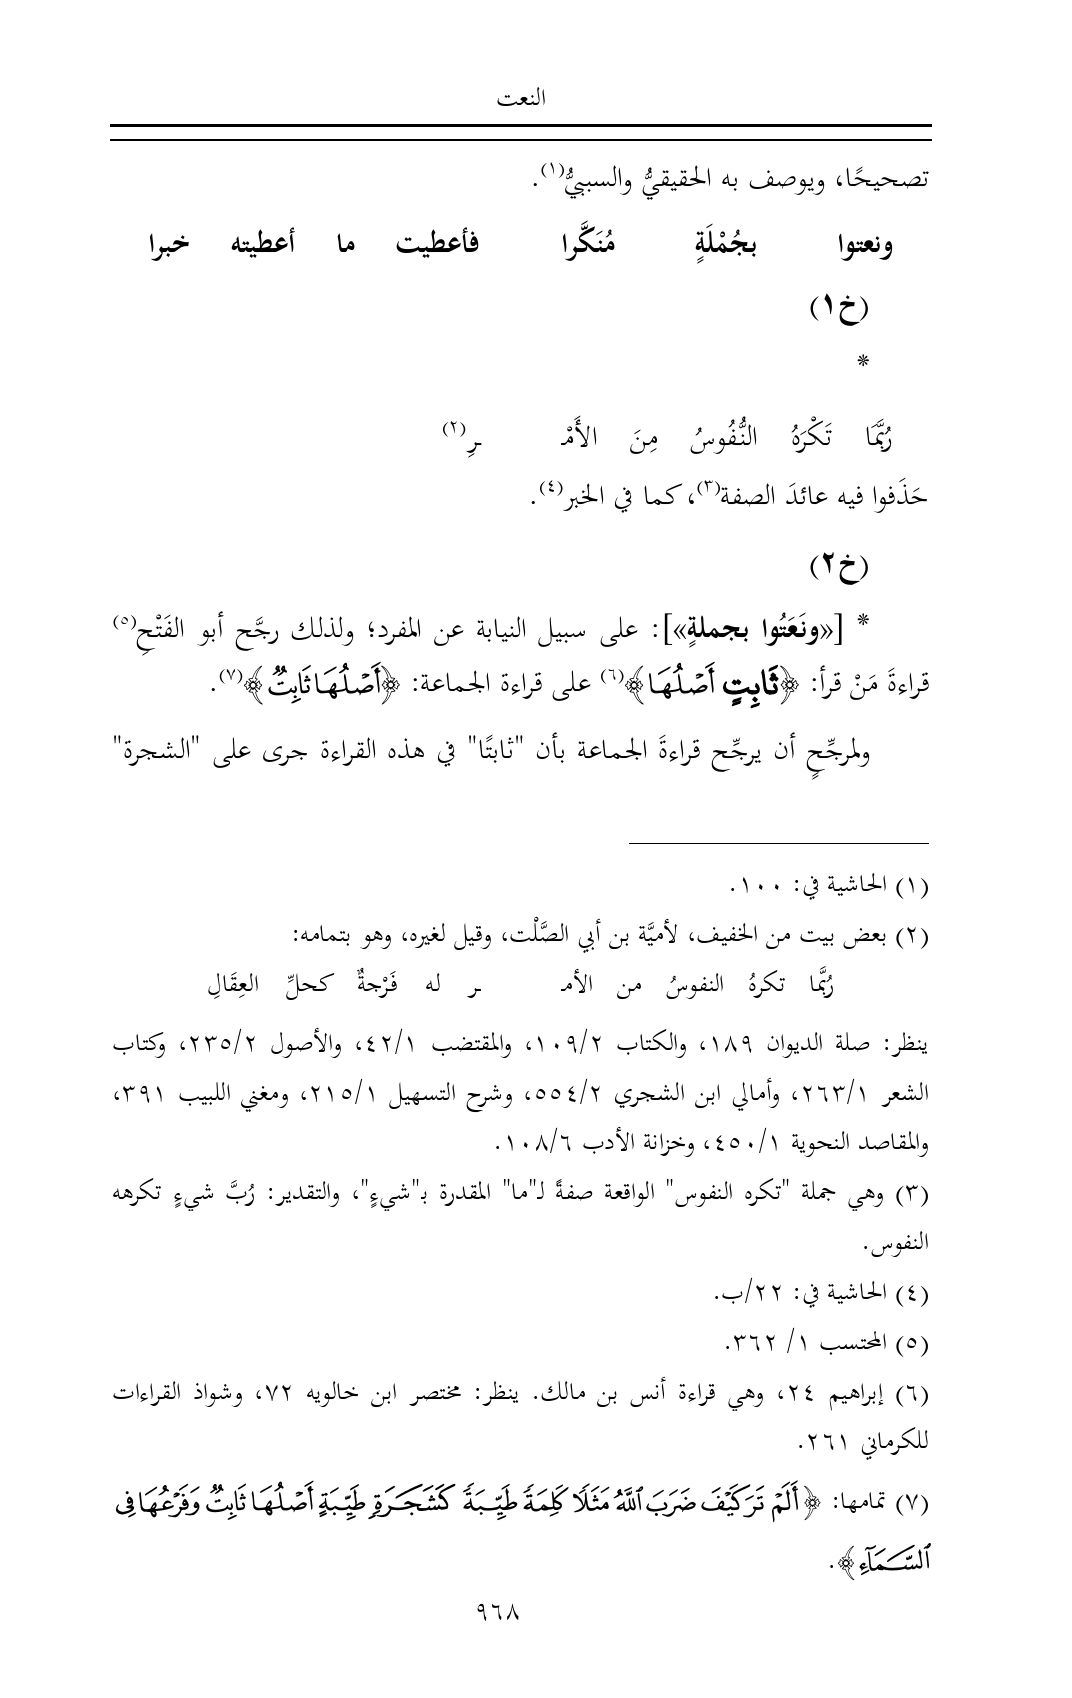 النعت
تصحيحًا، ويوصف به الحقيقيُّ والسببيُّ(١).
ونعتوا بجُمْلَةٍ مُنَكَّرا فأعطيت ما أعطيته خبرا
(خ١)
*
رُبَّمَا تَكْرَهُ النُّفُوسُ مِنَ الأَمْـ ـرِ(٢)
حَذَفوا فيه عائدَ الصفة(٣)، كما في الخبر(٤).
(خ٢)
* [«ونَعَتُوا بجملةٍ»]: على سبيل النيابة عن المفرد؛ ولذلك رجَّح أبو الفَتْحِ(٥)
قراءةَ مَنْ قرأ: ﴿ثَابِتٍ أَصْلُهَا﴾(٦) على قراءة الجماعة: ﴿أَصْلُهَا ثَابِتٌ﴾(٧).
ولمرجِّحٍ أن يرجِّح قراءةَ الجماعة بأن "ثابتًا" في هذه القراءة جرى على "الشجرة"
(١) الحاشية في: ١٠٠.
(٢) بعض بيت من الخفيف، لأميَّة بن أبي الصَّلْت، وقيل لغيره، وهو بتمامه:
رُبَّما تكرهُ النفوسُ من الأمـ ـر له فَرْجةٌ كحلِّ العِقَالِ
ينظر: صلة الديوان ١٨٩، والكتاب ١٠٩/٢، والمقتضب ٤٢/١، والأصول ٢٣٥/٢، وكتاب
الشعر ٢٦٣/١، وأمالي ابن الشجري ٥٥٤/٢، وشرح التسهيل ٢١٥/١، ومغني اللبيب ٣٩١،
والمقاصد النحوية ٤٥٠/١، وخزانة الأدب ١٠٨/٦.
(٣) وهي جملة "تكره النفوس" الواقعة صفةً لـ"ما" المقدرة بـ"شيءٍ"، والتقدير: رُبَّ شيءٍ تكرهه
النفوس.
(٤) الحاشية في: ٢٢/ب.
(٥) المحتسب ١/ ٣٦٢.
(٦) إبراهيم ٢٤، وهي قراءة أنس بن مالك. ينظر: مختصر ابن خالويه ٧٢، وشواذ القراءات
للكرماني ٢٦١.
(٧) تمامها: ﴿أَلَمْ تَرَ كَيْفَ ضَرَبَ ٱللَّهُ مَثَلًا كَلِمَةً طَيِّبَةً كَشَجَرَةٍ طَيِّبَةٍ أَصْلُهَا ثَابِتٌ وَفَرْعُهَا فِى
ٱلسَّمَآءِ﴾.
٩٦٨